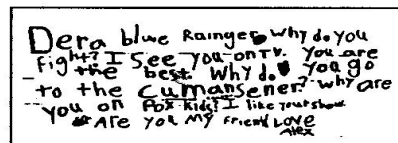 Dera blue Rainger Why do you
fight? I See you on TV. You are
the best. Why do you go
to the cumansener? why are
you on Fox kids? I like your show.
Are you my friend Love
Alex